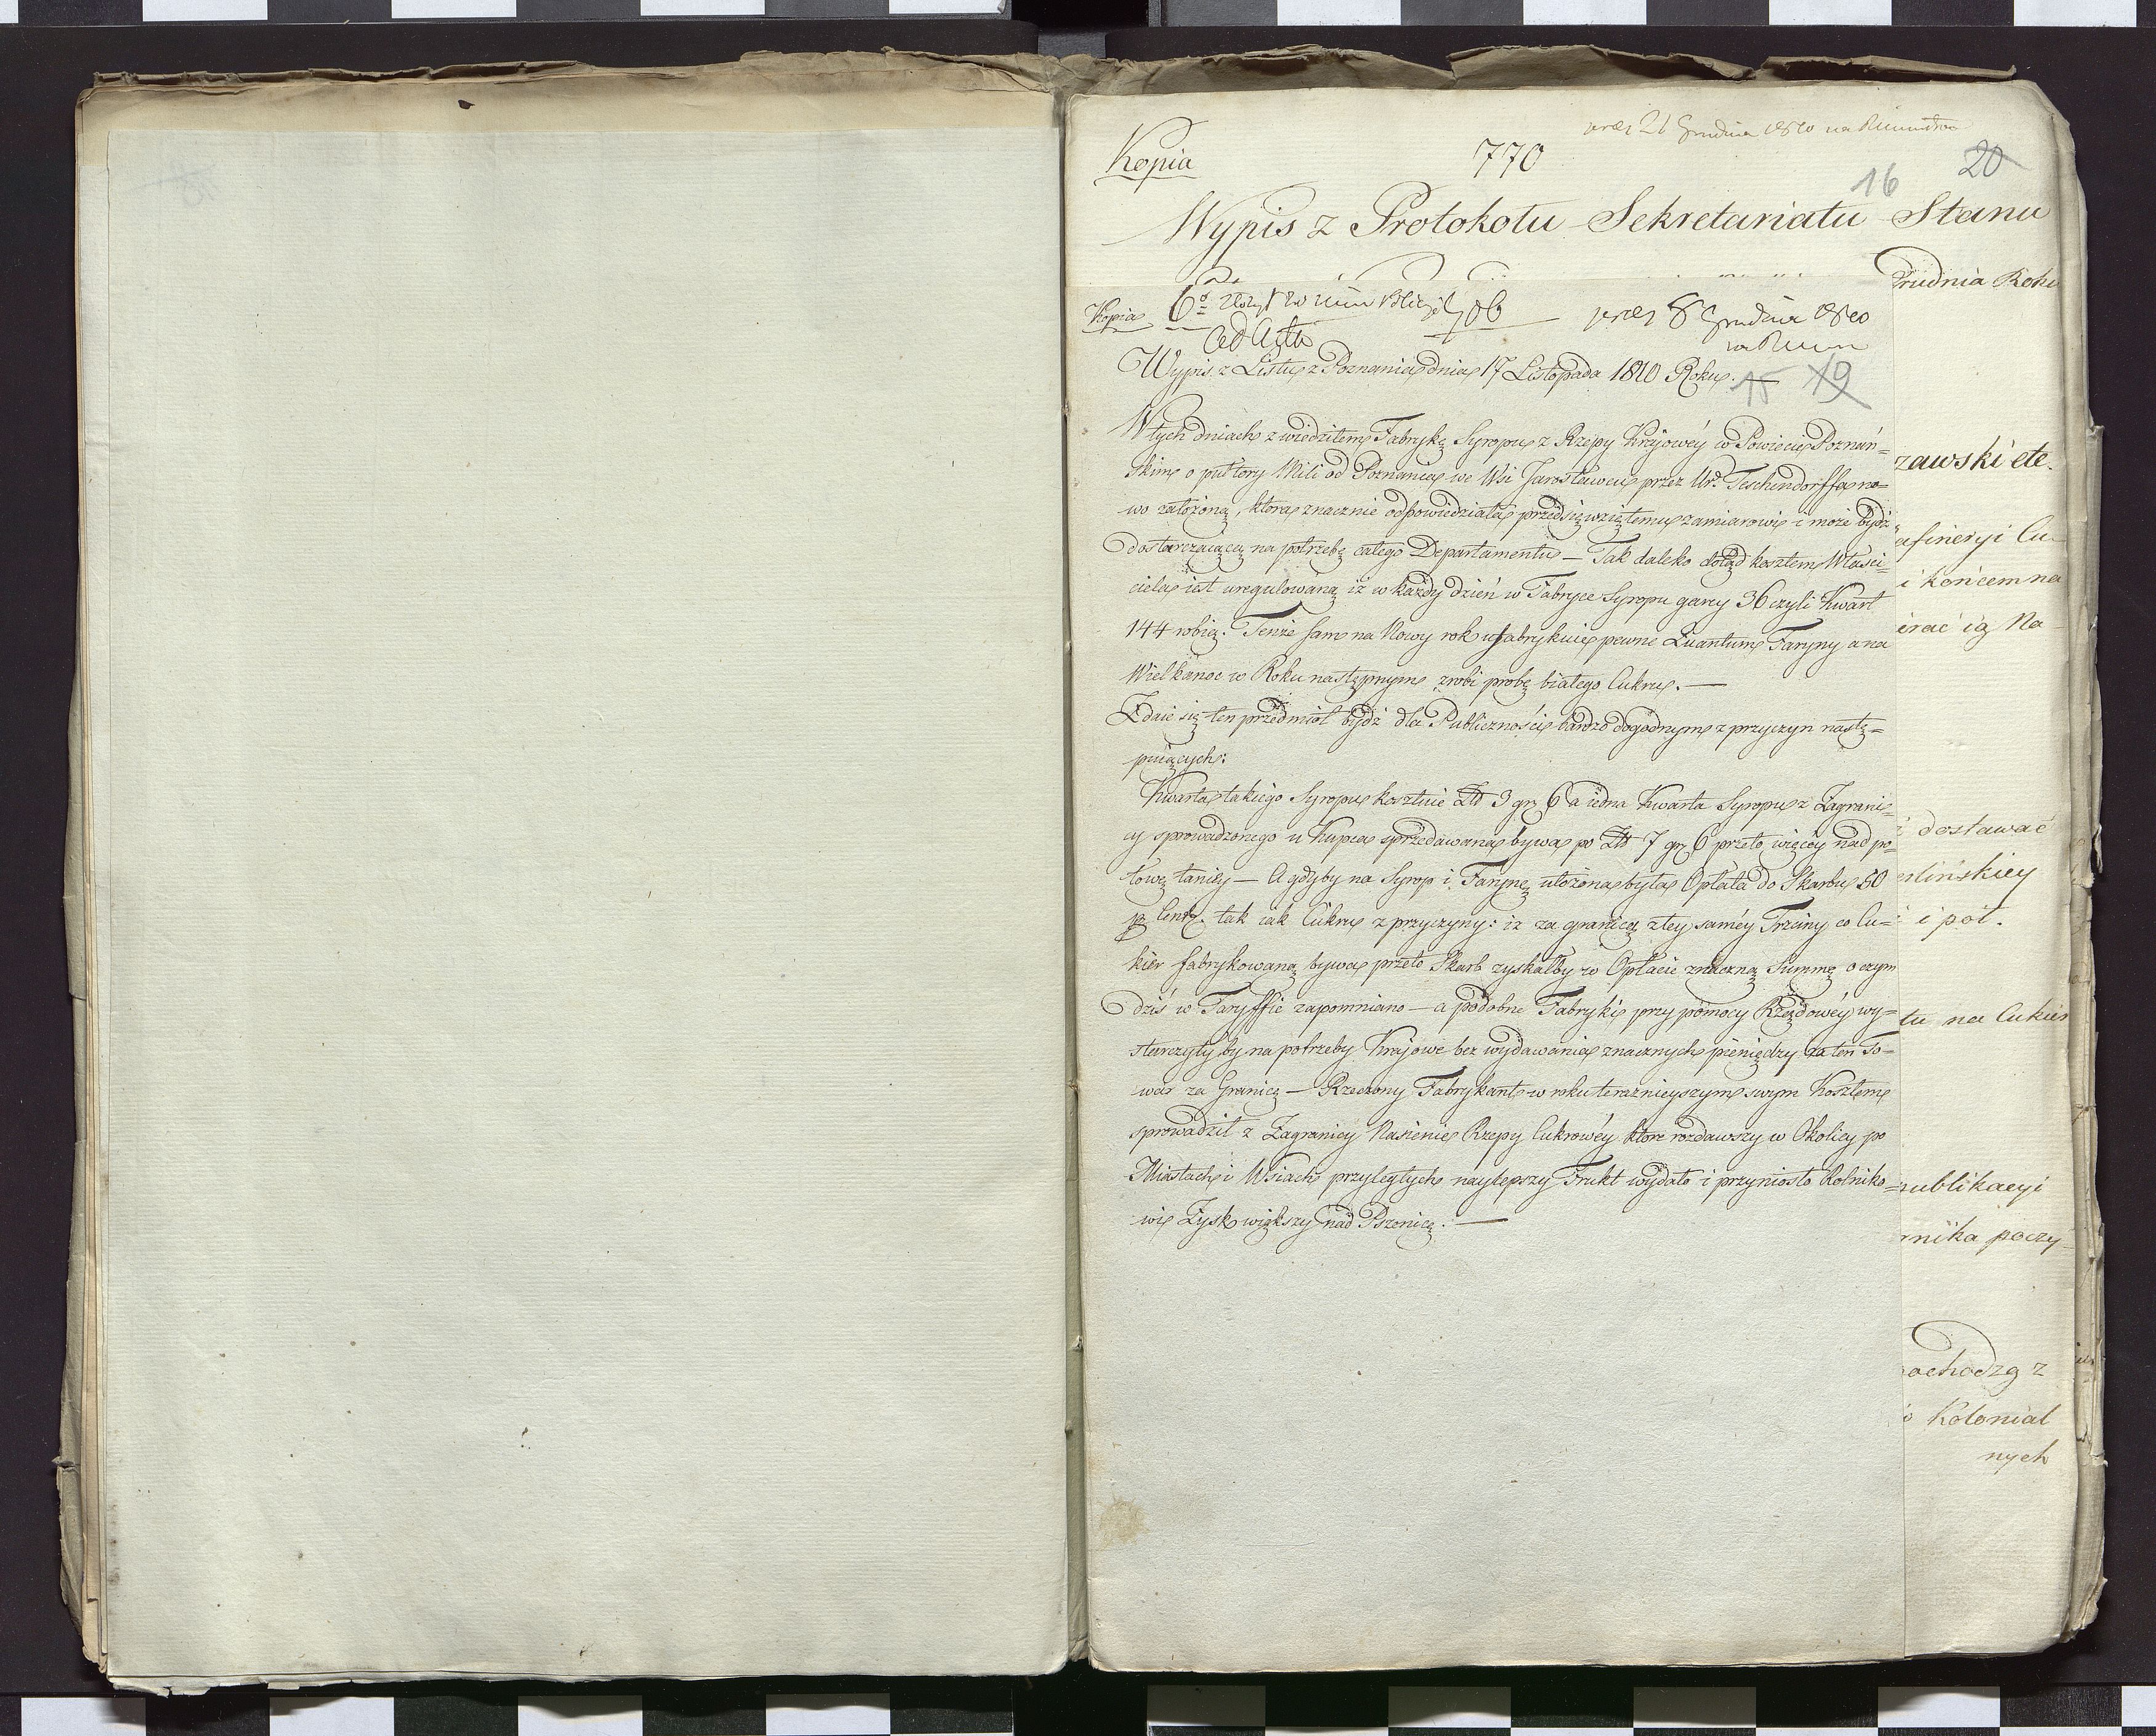 21 Grudnia 1810 na
Kopia
770
20
16
Wypis z Protokołu Sekretariatu Stanu
Grudnia Roku
Kopia
706
8 Grudnia 1810
ad Acta
Wypis z Listu z Poznania dnia 17 Listopada 1810 Roku. —
15 19
W tych dniach zwiedziłem Fabrykę Syropu z Rzepy Krajowéy w Powiecie Poznań=
skim o pułtory Mili od Poznania we Wsi Jarosławcu przez Ur. Teschendorffa no=
wo założoną, która znacznie odpowiedziała przedsięwziętemu zamiarowi i może bydź
dostarczaiącą na potrzebę całego Departamentu — Tak daleko dotąd kosztem Właści=
ciela iest uregulowaną iż w każdy dzień w Fabryce Syropu garcy 36 czyli Kwart
144 robią. Tenże sam na Nowy rok ufabrykuie pewne Quantum Faryny a na
Wielkanoc w Roku następnym zrobi probę białego Cukru. —
Zdaie się ten przedmiot bydź dla Publiczności bardzo dogodnym z przyczyn nastę=
puiących:
Kwarta takiego Syropu kosztuie Zł 3 gr 6 a iedna Kwarta Syropu z Zagrani=
cy sprowadzonego u Kupca sprzedawana bywa po Zł 7 gr 6 przeto więcéy nad po=
łowę taniéy — A gdyby na Syrop i Farynę ułożona była Opłata do Skarbu 50
p Cent. tak iak Cukru z przyczyny: iż za granicą z tey saméy Trzciny co Cu=
kier fabrykowaną bywa przeto Skarb zyskałby w Opłacie znaczną Summę o czym
dziś w Taryffie zapomniano — a podobne Fabryki przy pomocy Rządowéy wy=
starczyłyby na potrzeby Krajowe bez wydawania znacznych pieniędzy za ten To=
war za Granicę — Rzeczony Fabrykant w roku teraznieyszym swym Kosztem
sprowadził z Zagranicy Nasienie Rzepy Cukrowéy które rozdawszy w Okolicy po
Miastach i Wsiach przyległych naylepszy Frukt wydało i przyniosło Rolniko=
wi Zysk większy nad Pszenicę. —
zawski etc.
afineryi Cu-
i końcem na
ierać ią Na-
dostawać
erlińskiey
i pół.
tu na Cukier
publikacyi
rnika poczy-
pochodzą z
Kolonial
nych